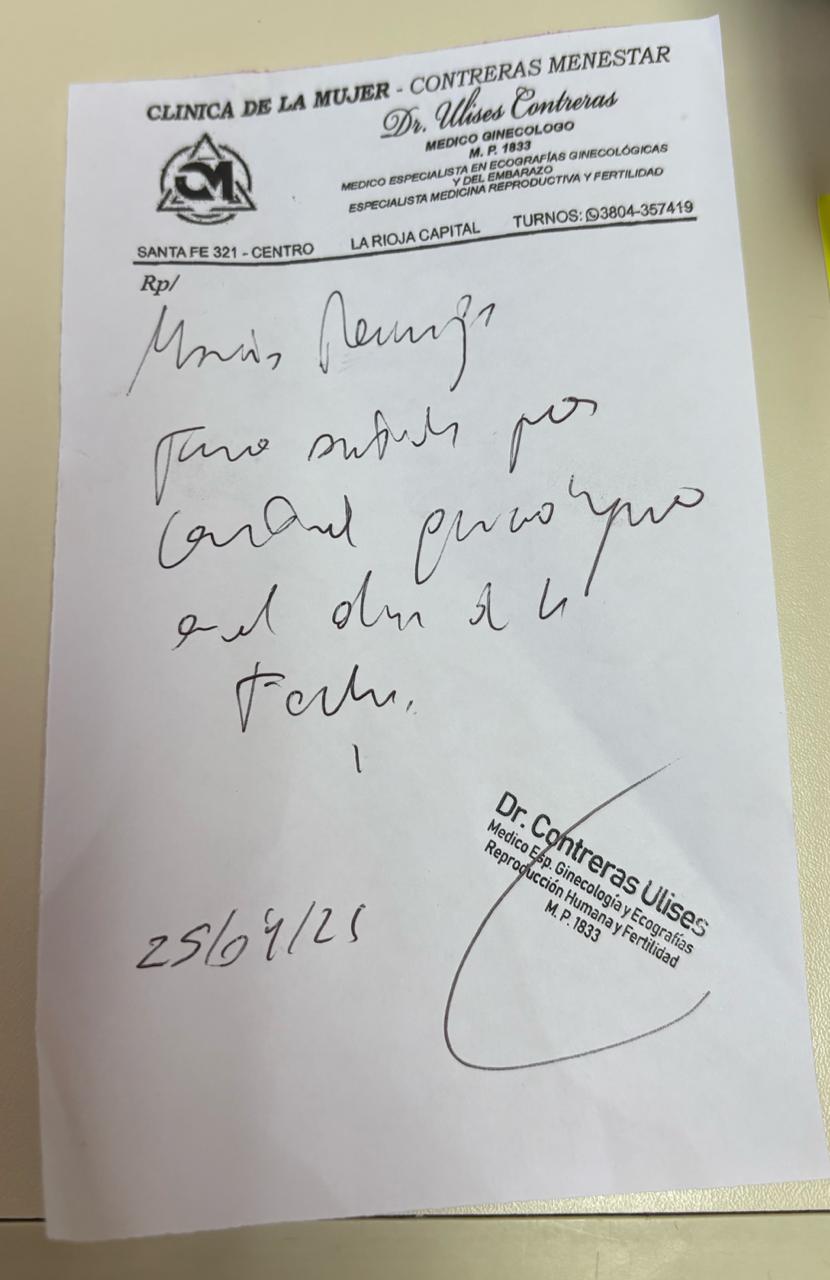 CLINICA DE LA MUJER - CONTRERAS MENESTAR
Dr. Ulises Contreras
MEDICO GINECOLOGO
M. P. 1833
MEDICO ESPECIALISTA EN ECOGRAFÍAS GINECOLÓGICAS
Y DEL EMBARAZO
ESPECIALISTA MEDICINA REPRODUCTIVA Y FERTILIDAD
CM
SANTA FE 321 - CENTRO LA RIOJA CAPITAL TURNOS: 3804-357419
Rp/
por
Control
en el dia de la
Fecha.
25/04/25
Dr. Contreras Ulises
Medico Esp. Ginecología y Ecografías
Reproducción Humana y Fertilidad
M. P. 1833